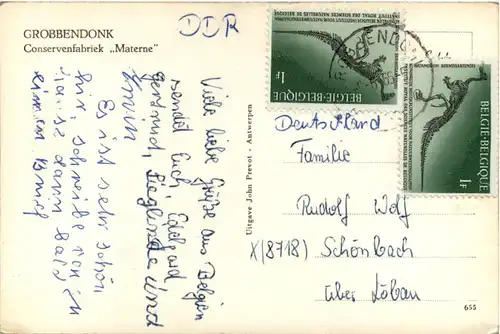 GROBBENDONK
Conservenfabriek „Materne"
DDR
Viele liebe Grüße aus Belgien
sendet Euch, Edelgard
Gertrud, Sieglinde und
Erwin
Es ist sehr schön
hier, schreibe von zu
hause dann bald
einen Brief
Uitgave John Prevot - Antwerpen
BELGIE-BELGIQUE
1F
BELGIE-BELGIQUE
1F
Deutschland
Familie
Rudolf Wolf
X(8718) Schönbach
über Löbau
655